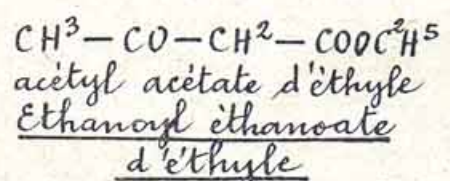 CH³–CO–CH²–COOC²H⁵
acétyl acétate d'éthyle
Ethanoyl éthanoate
d'éthyle